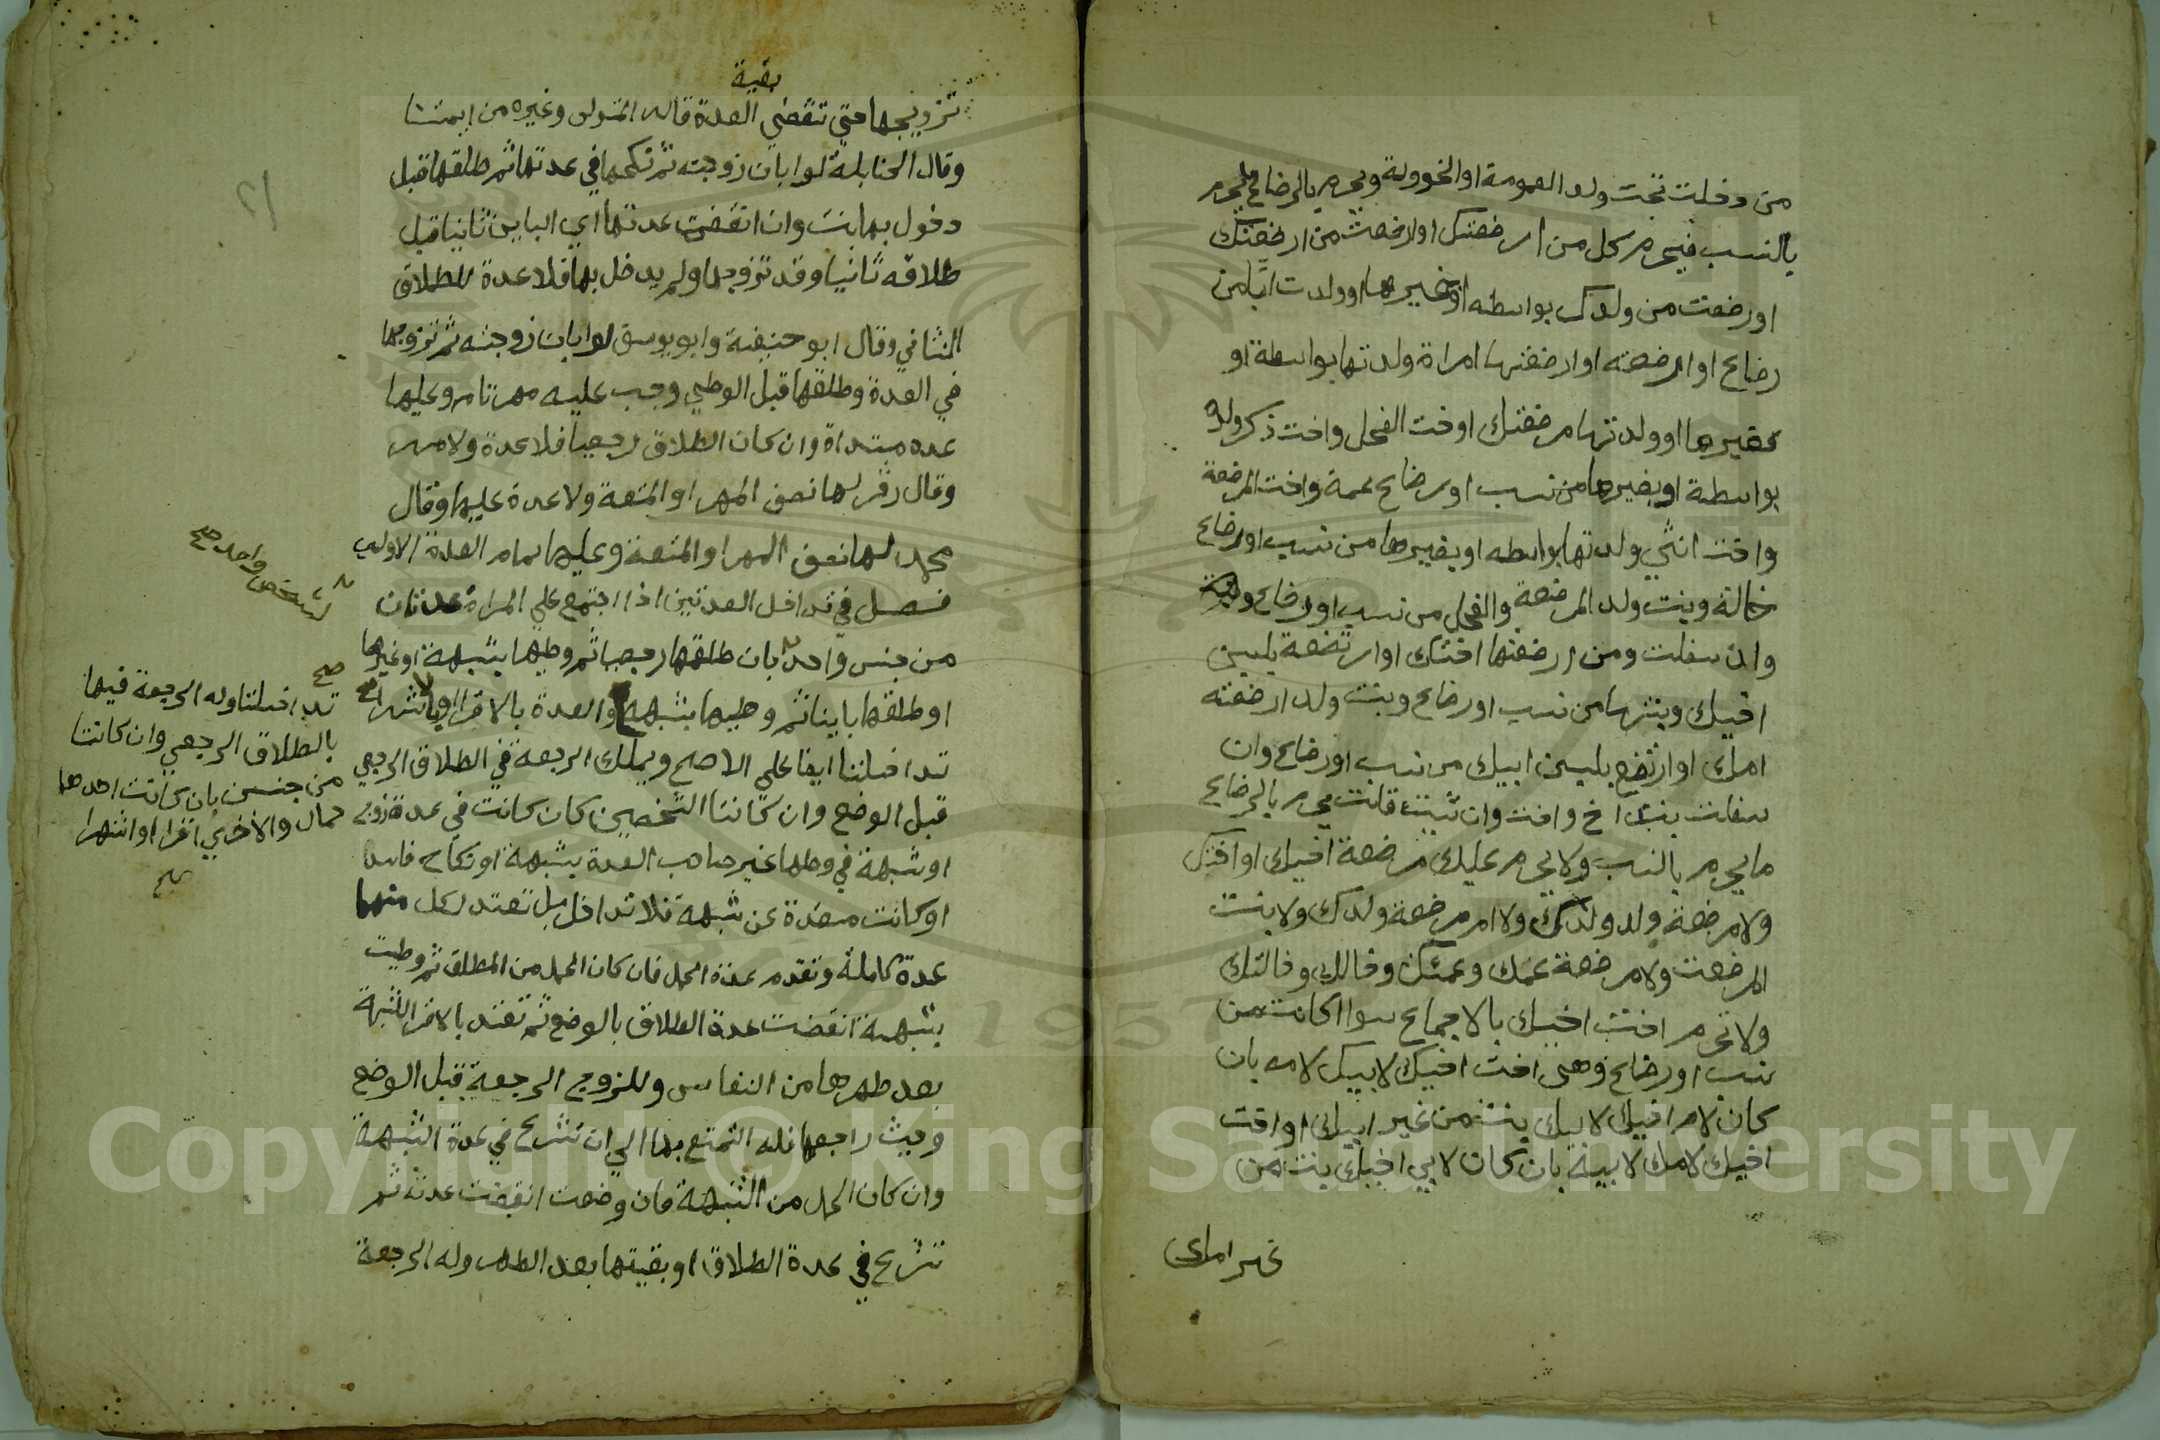 من دخلت تحت ولد العمومة او الخوولة ويحرم بالرضاع ما يحرم
بالنسب فيحرم كل من ارضعتك او ارضعت من ارضعتك
او رضعت من ولدك بواسطه او غيرها او ولدت ابا من
رضاع او ارضعته او ارضعتها امراة ولدتها بواسطة او
بغيرها او ولدتها مرضعتك اوخت الفحل واخت ذكر ولده
بواسطة او بغيرها من نسب او رضاع عمة واخت المرضعة
واخت انثي ولدتها بواسطه او بغيرها من نسب او رضاع
خالة وبنت ولد المرضعة والفحل من نسب او رضاع
وان سفلت ومن ارضعتها اختك او ارتضعة بلبن
اخيك وبنتها من نسب او رضاع وبنت ولد ارضعته
امك او ارتضع بلبن ابيك من نسب او رضاع وان
سفلت بنت اخ واخت وان شيت قلت يحرم بالرضاع
ما يحرم بالنسب ولا يحرم عليك مرضعة اخيك او اختك
ولا مرضعة ولد ولدك ولا ام مرضعة ولدك ولا بنت
المرضعت ولا مرضعة عمك وعمتك وخالك وخالتك
ولا تحرم اخت اخيك بالاجماع سوا اكانت من
نسب او رضاع وهى اخت اخيك لابيك لامه بان
كان لام اخيك لابيك بنت من غير ابيك او اخت
اخيك لامك لابيه بان كان لابي اخيك بنت من
غير امك
بقية
تزويجها حتي تنقضي العدة قاله المتولى وغيره من ايمتنا
وقال الحنابلة لو ابان زوجته ثم نكحها في عدتها ثم طلقها قبل
دخول بها بنت وان انقضت عدتها اي الباين ثانيا قبل
طلاقه ثانيا وقد تزوجها ولم يدخل بها فلا عدة للطلاق
الثاني وقال ابو حنيفة وابو يوسق لو ابان زوجته ثم تزوجها
في العدة وطلقها قبل الوطي وجب عليه مهر تام وعليها
عده مبتداة وان كان الطلاق رجعيا فلا عدة ولا مهر
وقال زفر لها نصف المهر او المتعة ولا عدة عليها وقال
محمد لها نصف المهر او المتعة وعليها تمام العدة الاولى
فصل في تداخل العدتين اذا اجتمع علي المراة عدتان
من جنس واحد بان طلقها رجعيا ثم وطيها بشبهة او غيرها
او طلقها باينا ثم وطيها بشبهة والعدة بالاقرا او بالاشهر
تداخلتا ايضا علي الاصح ويملك الرجعة في الطلاق الرجعي
قبل الوضع وان كانتا لشخصين كان كانت في عدة زوج
او شبهة في وطيها غير صاحب العدة بشبهة او نكاح فاسد
او كانت معتدة عن شبهة فلا تداخل بل تعتد لكل منهما
عدة كاملة وتقدم عدة الحمل فان كان الحمل من المطلق ثم وطيت
بشبهة انقضت عدة الطلاق بالوضع ثم تعتد بالاقرا للشبهة
بعد طهرها من النفاس وللزوج الرجعة قبل الوضع
وحيث راجعها فله التمتع بها الي ان تشرع في عدة الشبهة
وان كان الحمل من الشبهة فان وضعت انقضت عدته ثم
تشرع في عدة الطلاق او بقيتها بعد الطهر وله الرجعة
لشخص واحد صح
صح
تداخلتا وله الرجعة فيها
بالطلاق الرجعي وان كانتا
من جنسين بان كانت احدها
حمال والاخري اقرا او اشهرا
صح
Copyright © King Saud University
1957